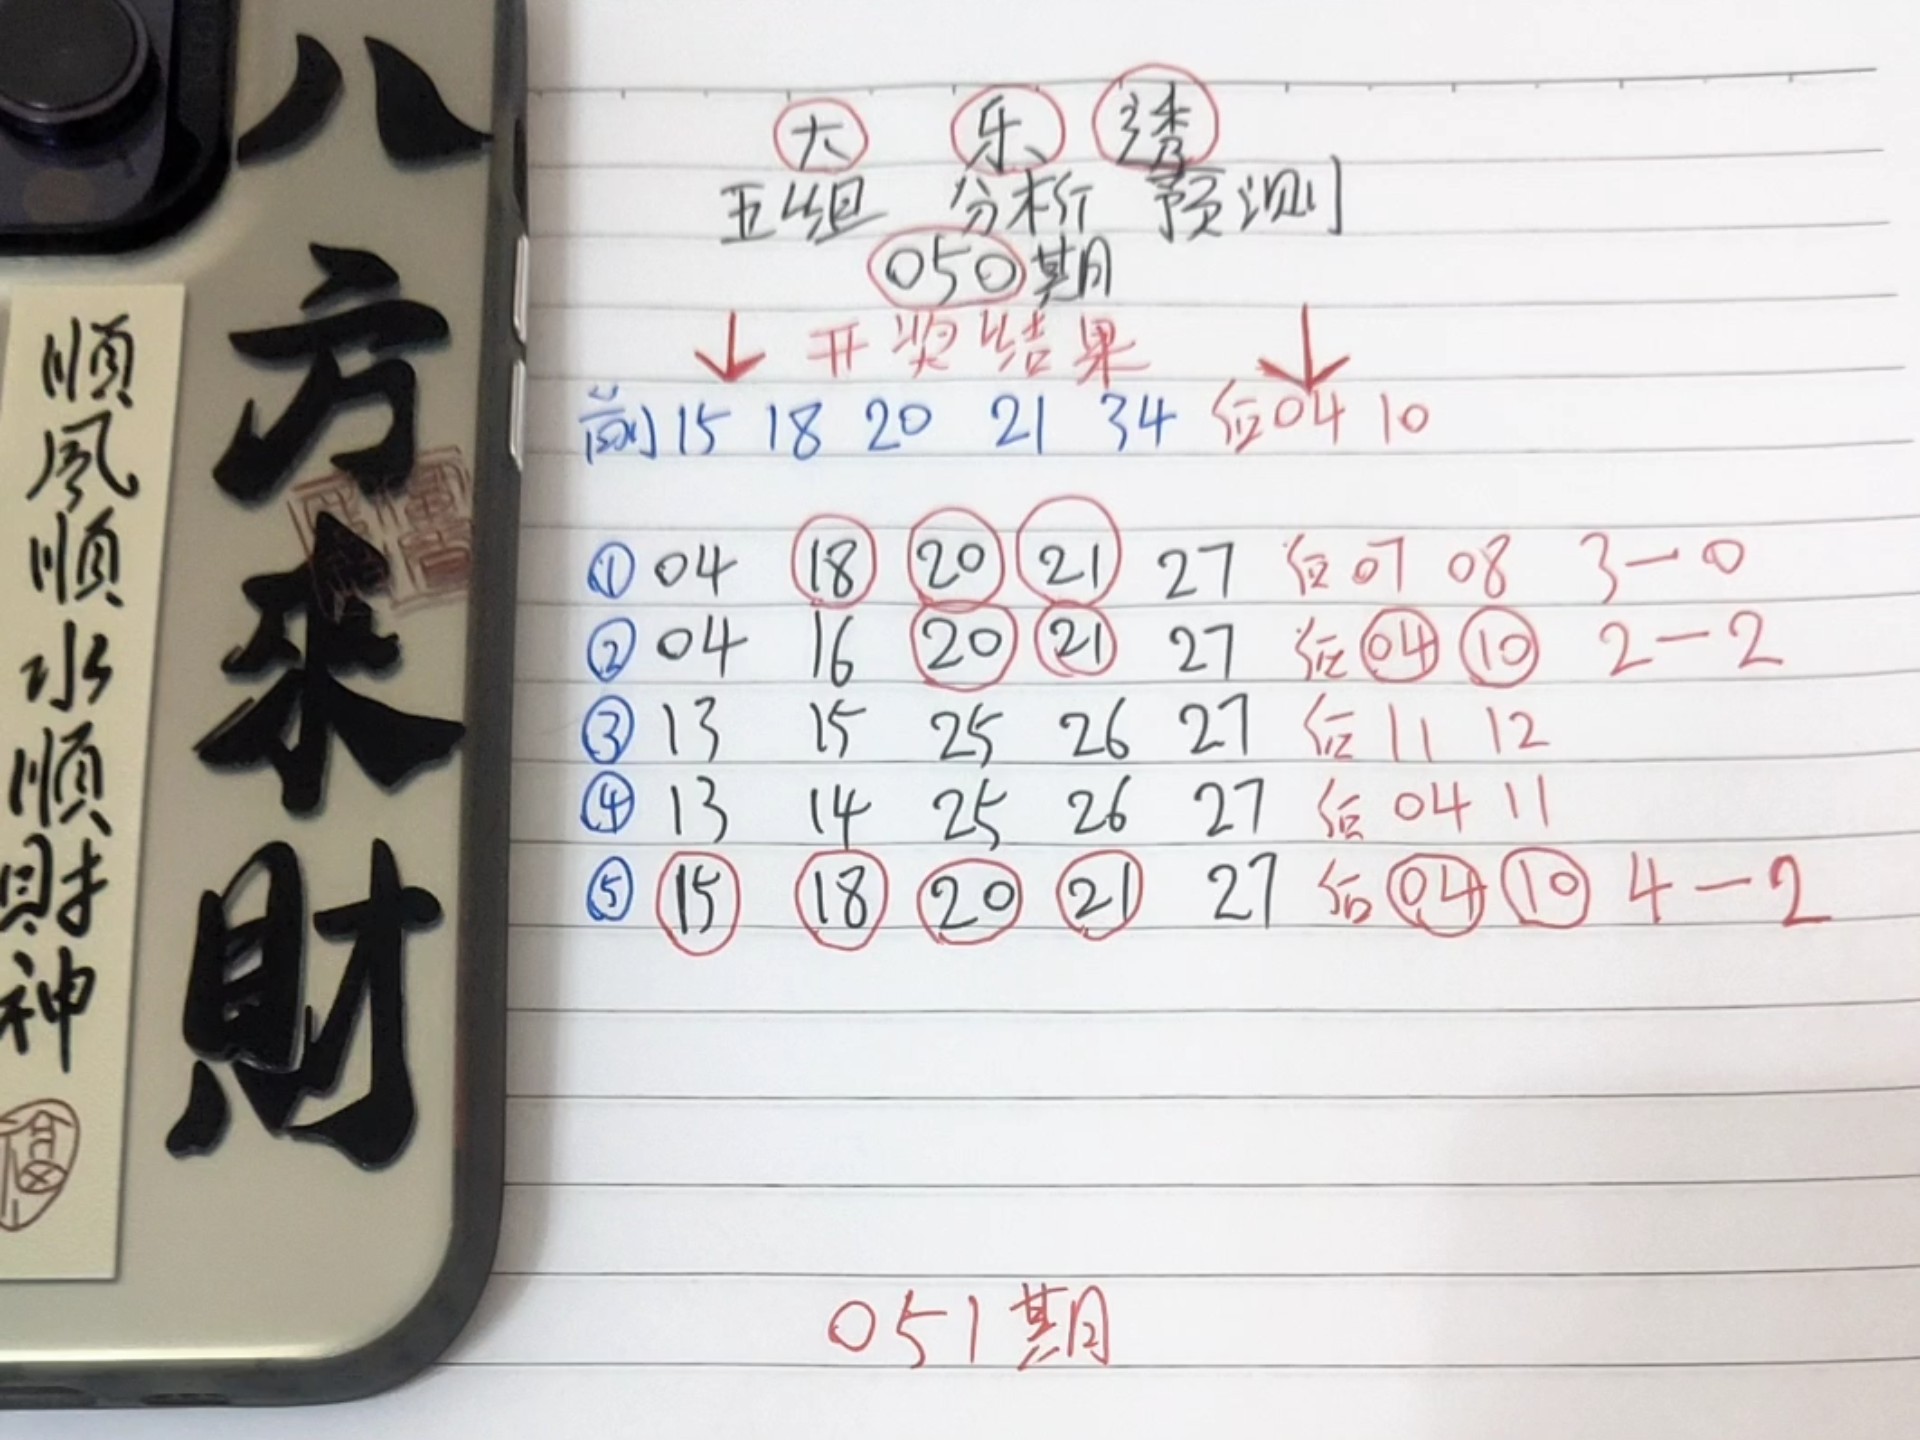 八方来财
順風順水順財神
福
大乐透
五组 分析 预测
050期
开奖结果
前 15 18 20 21 34 后 04 10
① 04 18 20 21 27 后 07 08 3-0
② 04 16 20 21 27 后 04 10 2-2
③ 13 15 25 26 27 后 11 12
④ 13 14 25 26 27 后 04 11
⑤ 15 18 20 21 27 后 04 10 4-2
051期